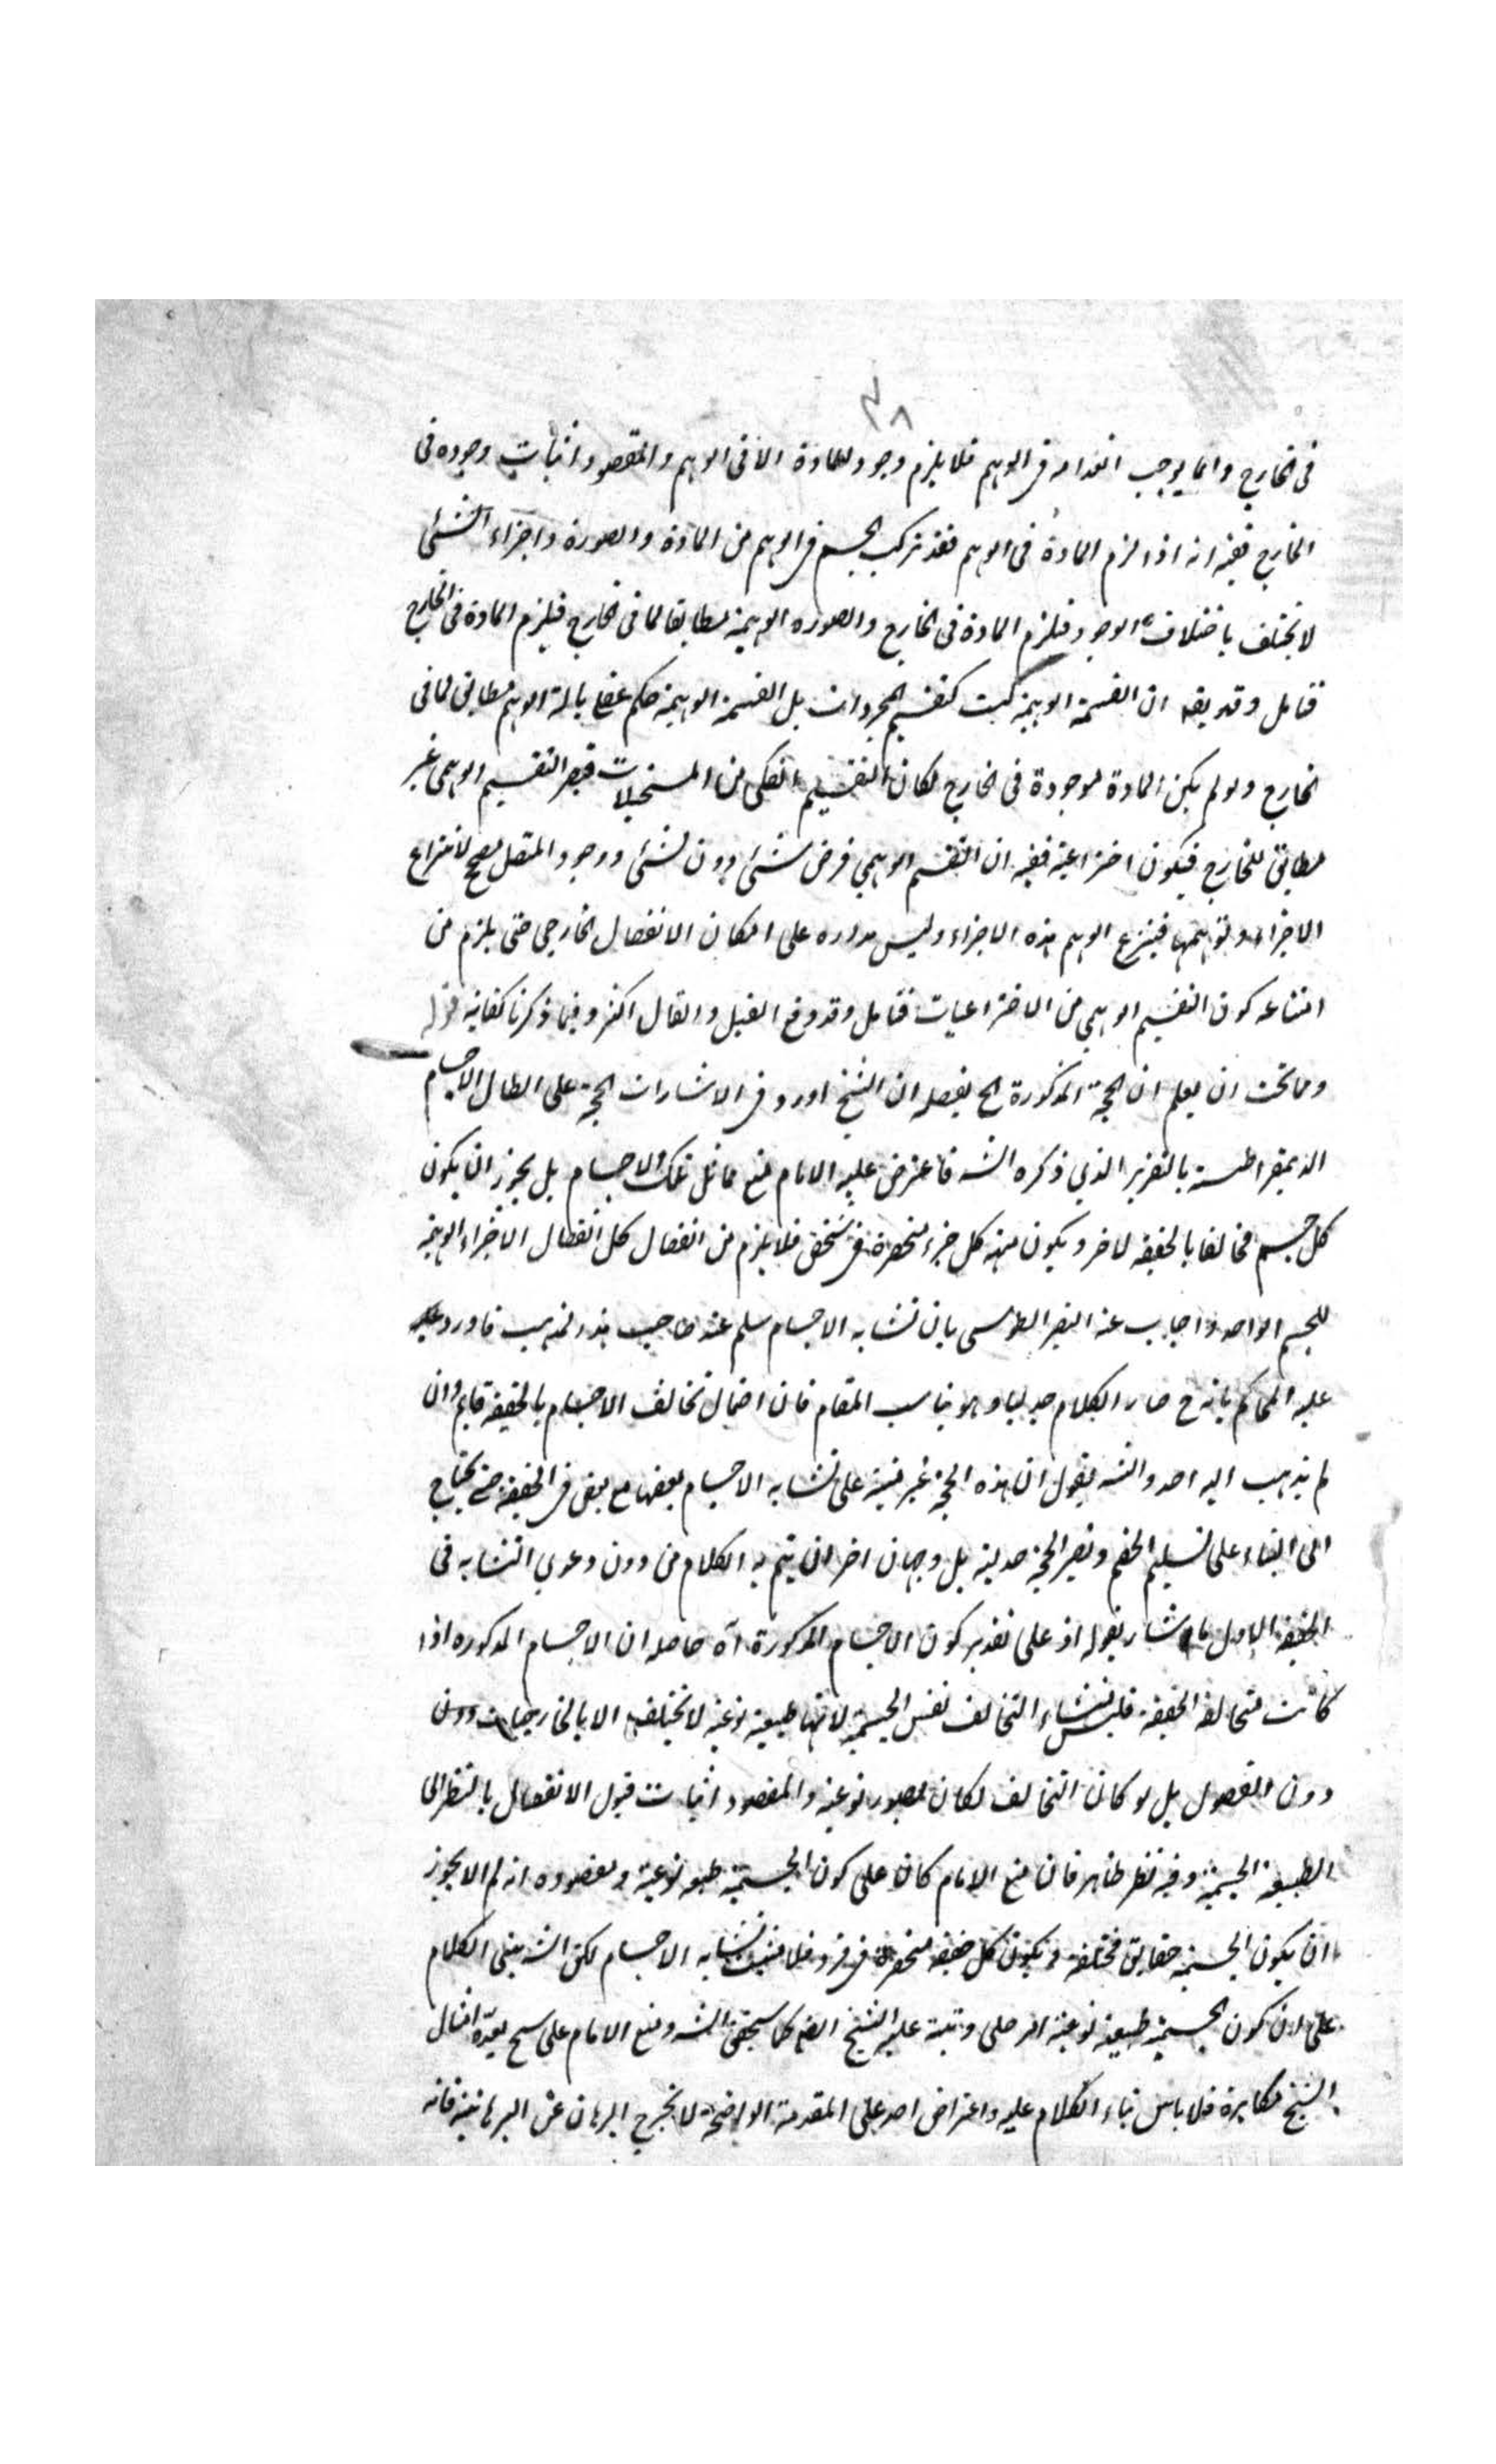 ٣٨
فى الخارج وانما يوجب انعدامه فى الوهم فلا يلزم وجود للمادة الا فى الوهم والمقصود اثبات وجوده فى
الخارج ففيه انه اذا لزم المادة فى الوهم فقد تركب الجسم فى الوهم من المادة والصورة واجزاء الشئ
لا يختلف باختلاف الوجود فلزم المادة فى الخارج والصوره الوهمية مطابقا لما فى الخارج فيلزم المادة فى الخارج
فتامل وقد يقه ان القسمة الوهمية ليست كتقسيم المجردات بل القسمة الوهمية حكم عقلى بالة الوهم مطابق لما فى
الخارج ولو لم يكن المادة موجودة فى الخارج لكان التقسيم الفكى من المستحيلات فيصير التقسيم الوهمى غير
مطابق للخارج فيكون اختراعية ففيه ان التقسيم الوهمي فرض شئ دون شئ ووجود المتصل مصحح لانتزاع
الاجزاء وتوهمها فينزع الوهم هذه الاجزاء وليس مداره على امكان الانفصال الخارجى حتى يلزم من
امتناعه كون التقسيم الوهمي من الاختراعيات فتامل وقد وقع القيل والقال اكثر وفيما ذكرنا كفاية قوله
ومما يجب ان يعلم ان الحجة المذكورة الخ تفصيله ان الشيخ اورد فى الاشارات الحجة على ابطال الاجسام
الديمقراطيسية بالتقرير الذي ذكره الشه فاعترض عليه الامام بمنع تماثل تلك الاجسام بل يجوز ان يكون
كل جسم مخالفا بالحقيقة لاخر ويكون مهية كل جزء منحصرة فى شخص فلا يلزم من انفصال كل انفصال الاجزاء الوهمية
للجسم الواحد واجاب عنه النصير الطوسى بان تشابه الاجسام مسلم عند صاحب هذا المذهب فاورد عليه
عليه المحاكم بانه ح صار الكلام جدليا وهو يناسب المقام فان احتمال تخالف الاجسام بالحقيقة قايم وان
لم يذهب اليه احد والشه يقول ان هذه الحجة غير مبنية على تشابه الاجسام بعضها مع بعض فى الحقيقة حتى يحتاج
الى البناء على تسليم الخصم وتصير الحجة جدلية بل وجهان اخران يتم به الكلام من دون دعوى التشابه فى
الحقيقة الاول ما اشار بقوله اذ على تقدير كون الاجسام المذكورة آه حاصله ان الاجسام المذكوره اذا
كانت متخالفة الحقيقة فليس منشاء التخالف نفس الجسمية لانها طبيعة نوعية لا يختلف الا بالخارجيات دون
دون الفصول بل لو كان التخالف لكان لصور نوعية والمقصود اثبات قبول الانفصال بالنظر الى
الطبيعة الجسمية وفيه نظر ظاهر فان منع الامام كان على كون الجسمية طبيعة نوعية ومقصوده انه لم لا يجوز
ان يكون الجسمية حقايق مختلفة ويكون كل حقيقة منحصرة فى فرد فلا يثبت تشابه الاجسام لكن الشه بينى الكلام
على ان كون الجسمية طبيعة نوعية امر جلى وتنبه عليه الشيخ ايضا كما سيجئ الشه ومنع الامام على امثال
الشيخ مكابرة فلا باس بناء الكلام عليه واعتراض احد على المقدمة الواضحة لا يخرج البرهان عن البرهانية فانه